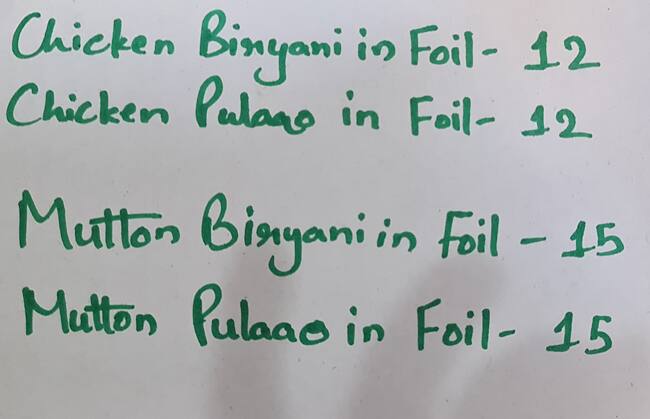 Chicken Biryani in Foil- 12
Chicken Pulaao in Foil- 12
Mutton Biryani in Foil - 15
Mutton Pulaao in Foil- 15